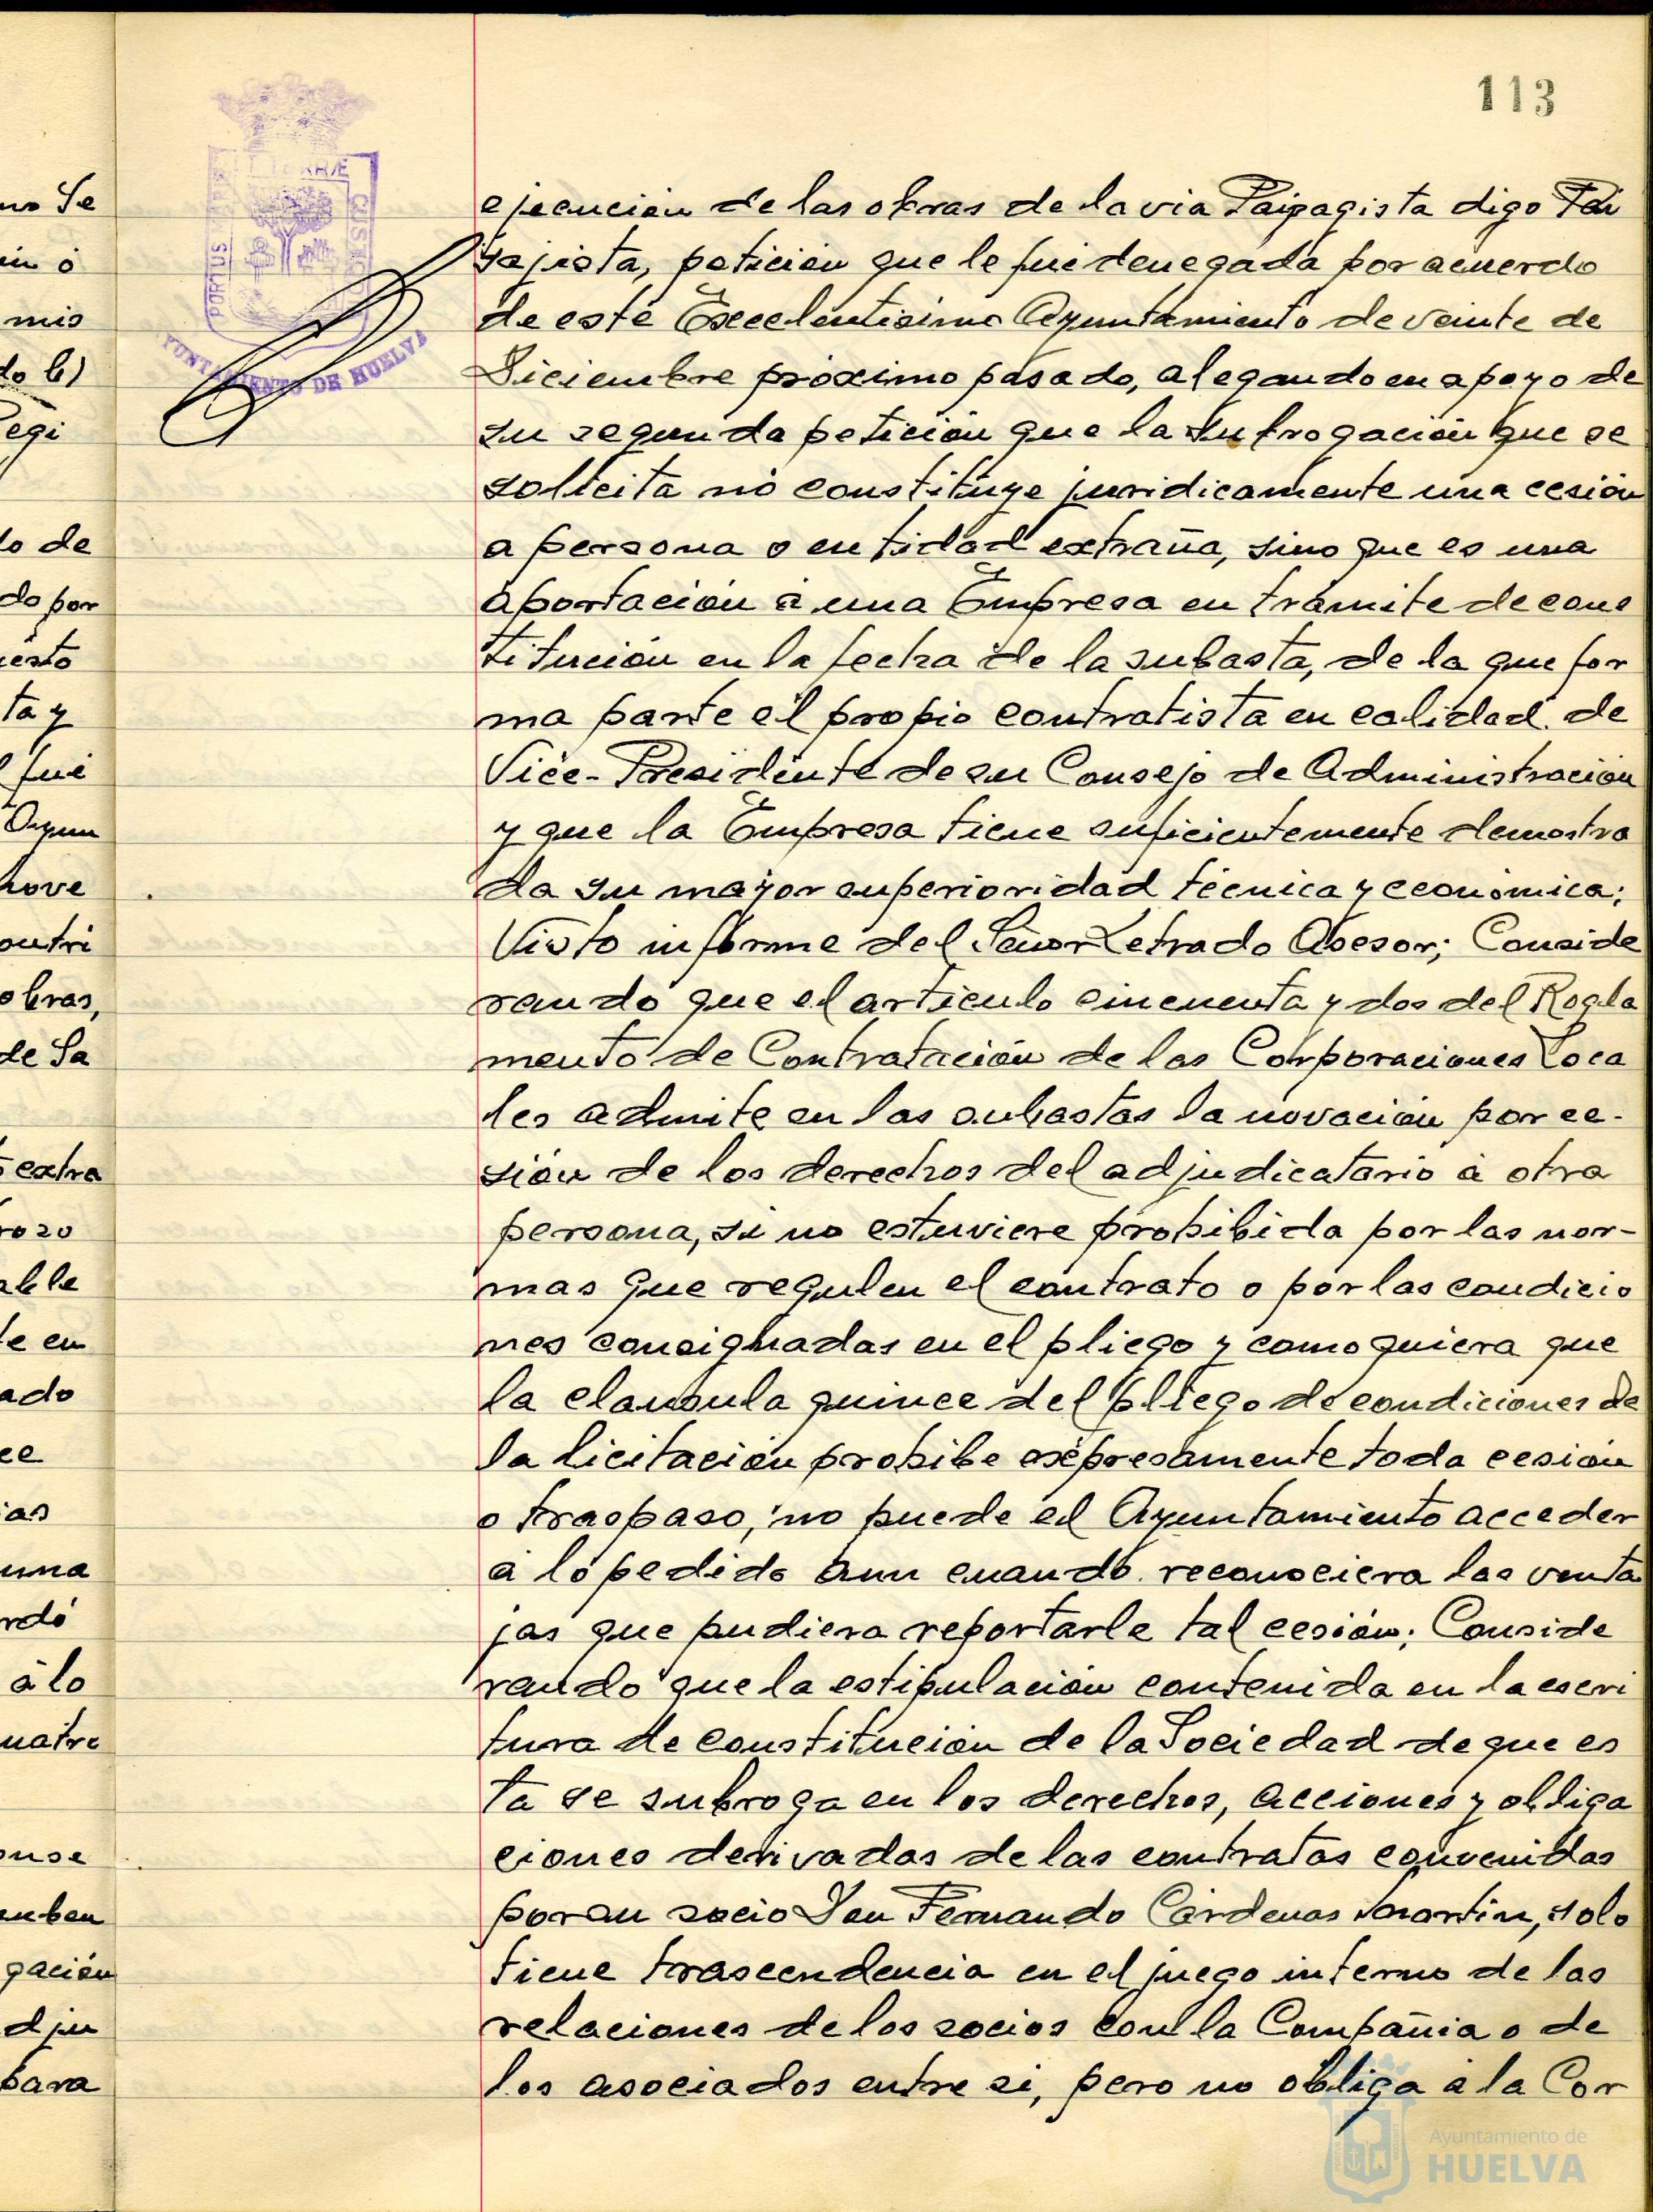 113
PORTUS MARIS ET TERRÆ CUSTODIA
AYUNTAMIENTO DE HUELVA
ejecución de las obras de la via Paipagista digo Pai
sajista, petición que le fué denegada por acuerdo
de este Excelentisimo Ayuntamiento de veinte de
Diciembre próximo pasado, alegando en apoyo de
su segunda petición que la subrogación que se
solicita no constituye juridicamente una cesión
a persona o entidad extraña, sino que es una
aportación á una Empresa en trámite de cons
titución en la fecha de la subasta, de la que for
ma parte el propio contratista en calidad de
Vice-Presidente de su Consejo de Administración
y que la Empresa tiene suficientemente demostra
da su mayor superioridad técnica y económica;
Visto informe del Señor Letrado Asesor; Conside
rando que el articulo cincuenta y dos del Regla
mento de Contratación de las Corporaciones Loca
les admite en las subastas la novación por ce-
sión de los derechos del adjudicatario á otra
persona, si no estuviere prohibida por las nor-
mas que regulen el contrato o por las condicio
nes consignadas en el pliego y como quiera que
la clausula quince del pliego de condiciones de
la licitación prohibe expresamente toda cesión
o traspaso, no puede el Ayuntamiento acceder
á lo pedido aun cuando reconociera las venta
jas que pudiera reportarle tal cesión; Conside
rando que la estipulación contenida en la escri
tura de constitución de la Sociedad de que es
ta se subroga en los derechos, acciones y obliga
ciones derivadas de las contratas convenidas
por su socio Don Fernando Cárdenas Martin, solo
tiene trascendencia en el juego interno de las
relaciones de los socios con la Compañia o de
los asociados entre si, pero no obliga á la Cor
Se
mis
do b)
egi
de
do por
ta y
fué
Ayun
nove
obras,
de Sa
extra
able
te en
ado
una
á lo
gación
dju
para
Ayuntamiento de
HUELVA